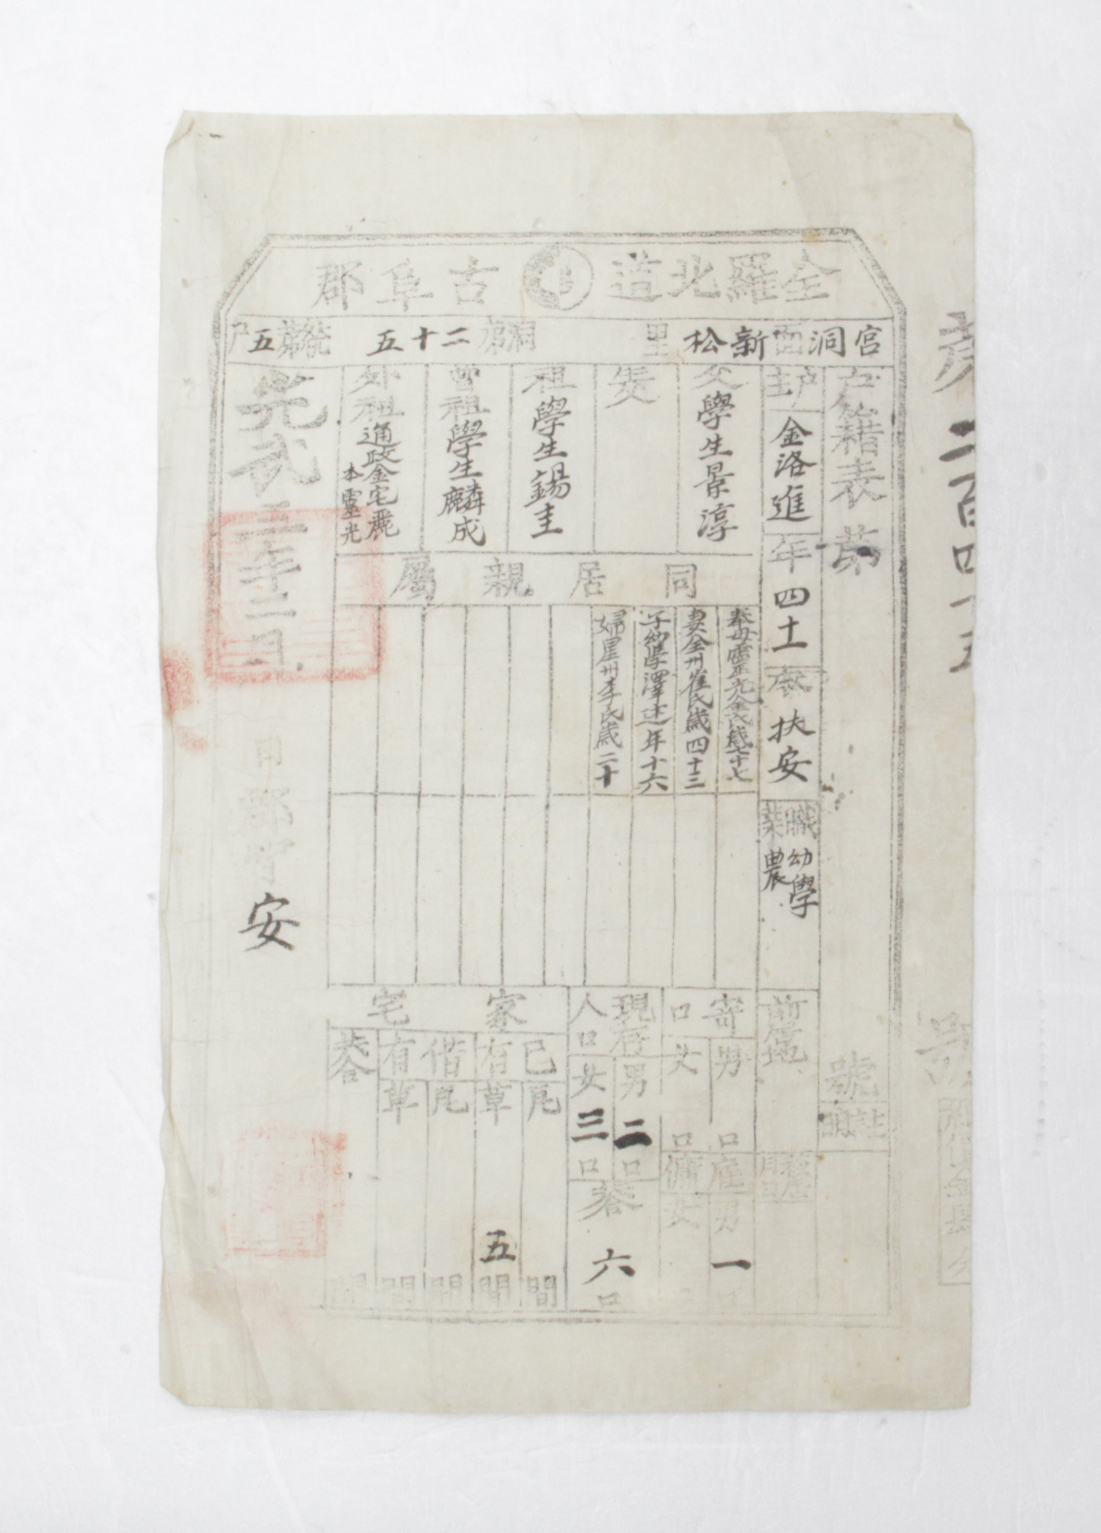 全羅北道 古阜郡
宮洞面新松里 洞第二十五統第五戶
戶籍表 第
號
戶主 金洛進 年四十一 本扶安 職業 幼學 農
前居地
移居月日
父 學生景淳
生父
祖 學生錫圭
曾祖 學生麟成
外祖 通政金宅麗 本靈光
同居親屬
奉母靈光金氏歲七十七
妻全州崔氏歲四十三
子幼學澤述年十六
婦星州李氏歲二十
寄口 男 口 女 口
雇傭 男一口 女
現存人口 男二口 女三口 共六口
家宅 己有 瓦 間 草五間 借有 瓦 間 草 間 共 間
光武三年二月 日 郡守 安